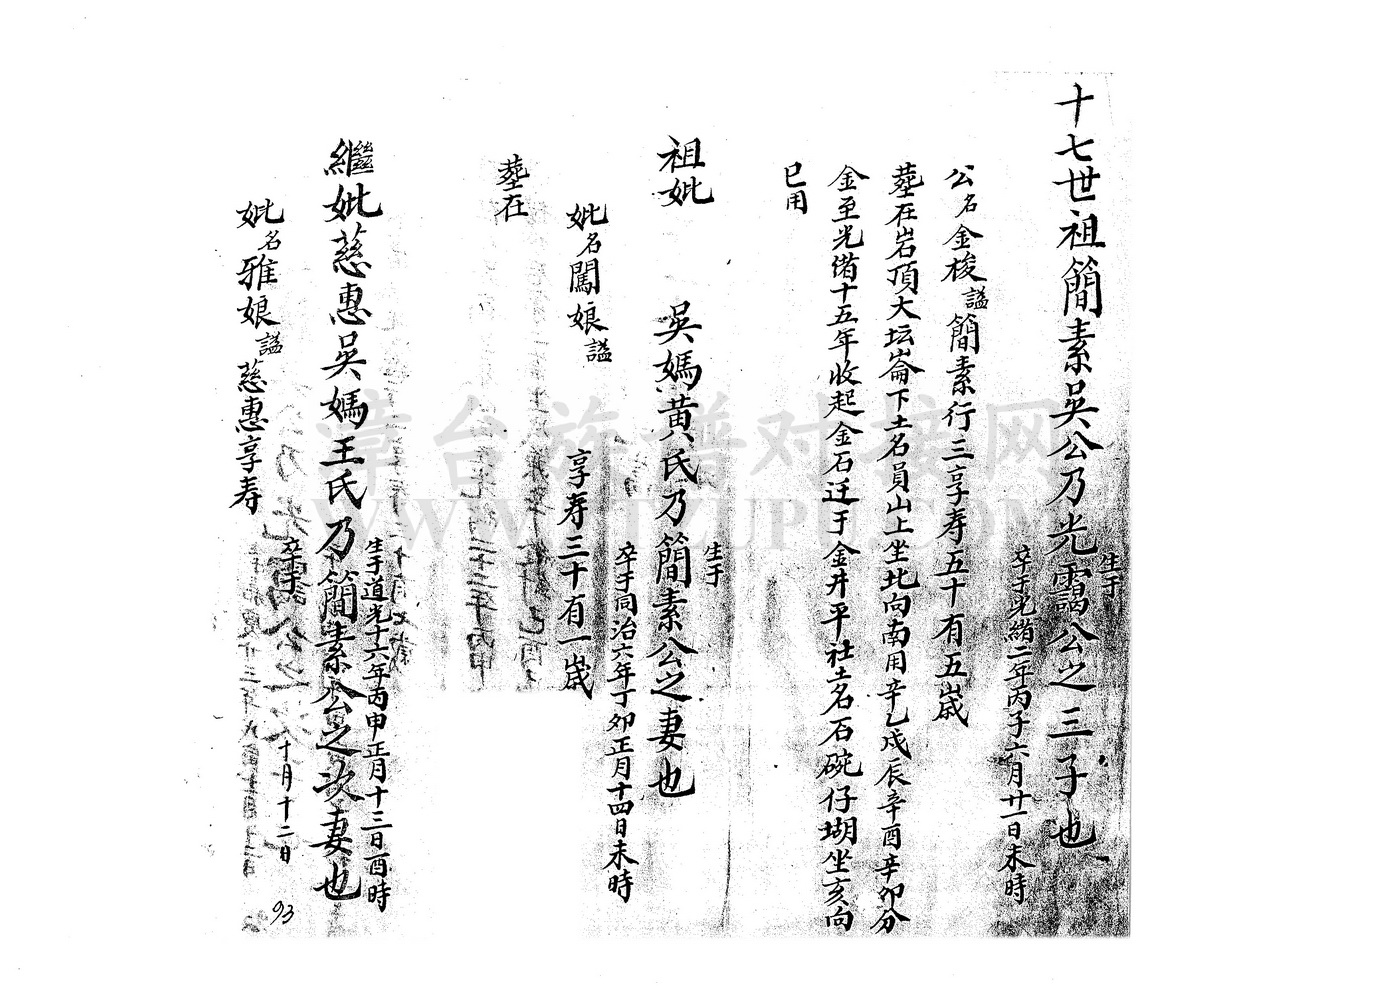 十七世祖簡素吳公乃光靄公之三子也
生于
卒于光緒二年丙子六月廿一日未時
公名金梭諡簡素行三享寿五十有五歲
塟在岩頂大坛崙下土名員山上坐北向南用辛乙戍辰辛酉辛卯分
金至光偖十五年收起金石迁于金井平社土名石碗仔坳坐亥向
巳用
祖妣 吳媽黄氏乃簡素公之妻也
生于
卒于同治六年丁卯正月十四日未時
妣名闖娘諡 享寿三十有一歲
塟在
繼妣慈惠吳媽王氏乃簡素公之次妻也
生于道光十六年丙申正月十三日酉時
卒于 十月十二日
妣名雅娘諡慈惠享寿
93
漳台族谱对接网
WWW.ZTZUPU.COM